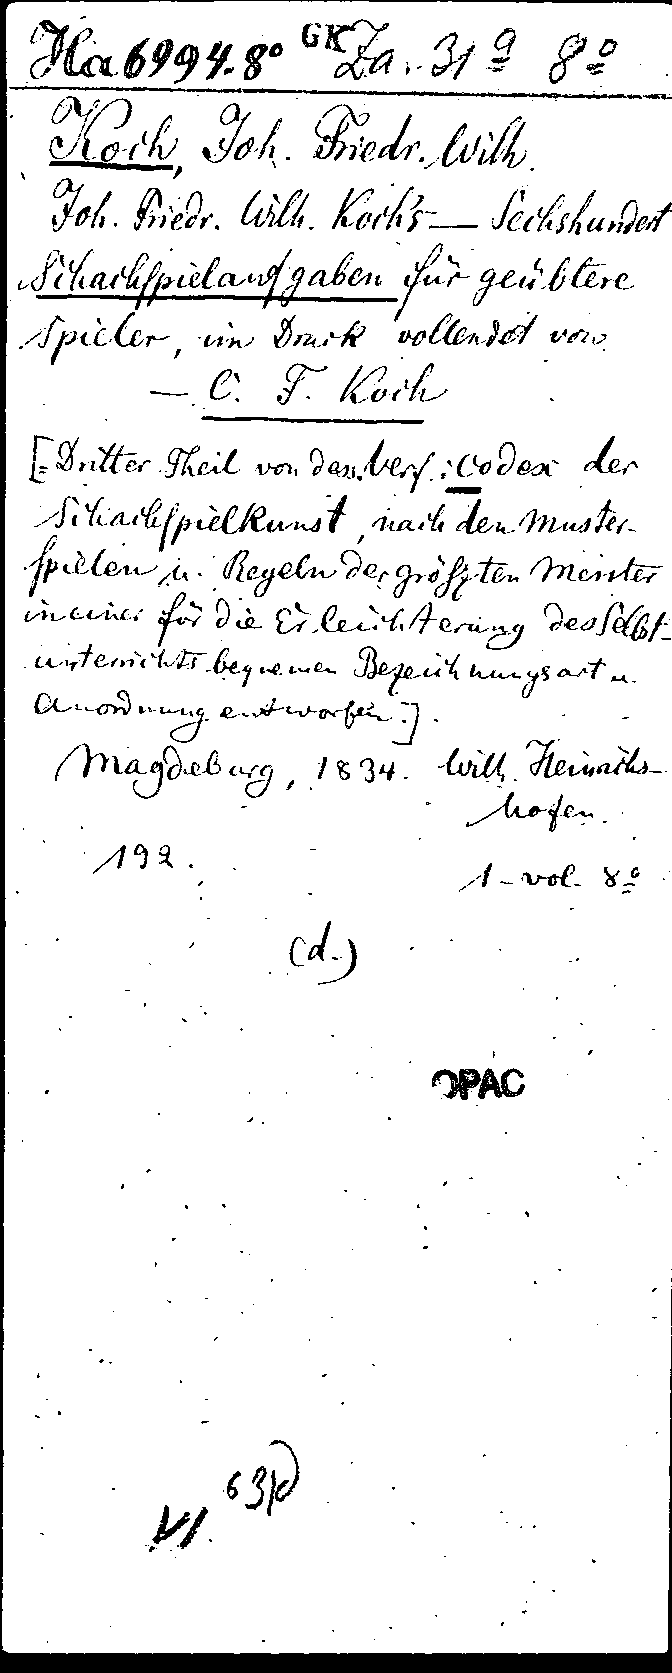 Ha 6994.8° GK Za. 31 a 8°
Koch, Joh. Friedr. Wilh.
Joh. Friedr. Wilh. Koch's — Sechshundert
Schachspielaufgaben für geübtere
Spieler, im Druck vollendet von
— C. F. Koch
[= Dritter Theil von dess. Verf.: Codex der
Schachspielkunst, nach den Muster-
spielen u. Regeln der größten Meister
in einer für die Erleichterung des Selbst-
unterrichts bequemen Bezeichnungsart u.
Anordnung entworfen.]
Magdeburg, 1834. Wilh. Heinrichs-
hofen.
192.
1 vol. 8°
(d.)
OPAC
63
VI.